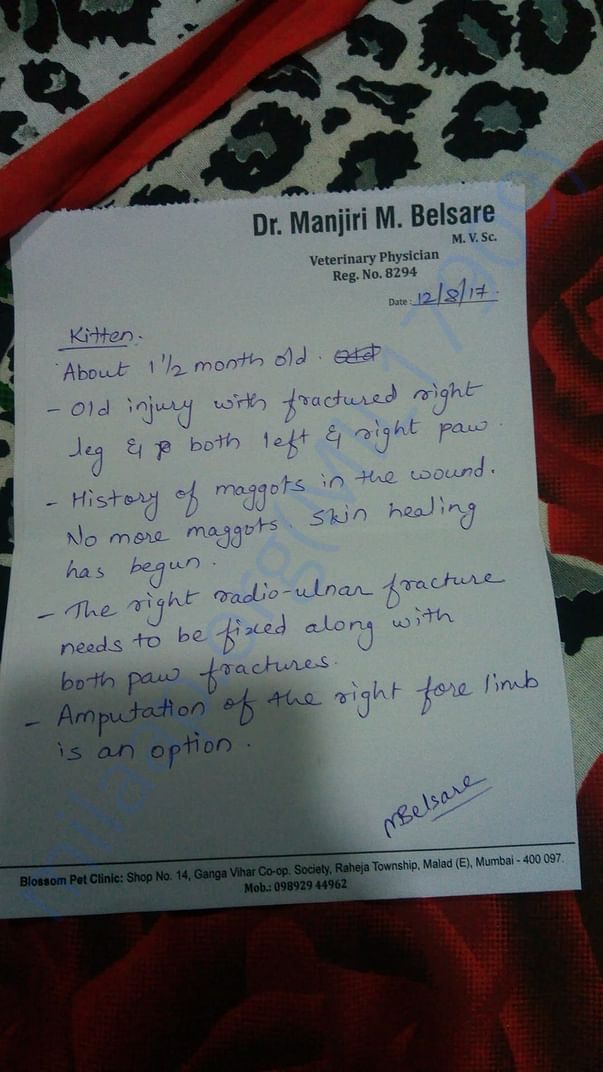 Dr. Manjiri M. Belsare
M. V. Sc.
Veterinary Physician
Reg. No. 8294
Date : 12/8/17.
Kitten.
About 1 1/2 month old.
- Old injury with fractured right
leg & both left & right paw.
- History of maggots in the wound.
No more maggots. Skin healing
has begun.
- The right radio-ulnar fracture
needs to be fixed along with
both paw fractures.
- Amputation of the right fore limb
is an option.
MBelsare
Blossom Pet Clinic: Shop No. 14, Ganga Vihar Co-op. Society, Raheja Township, Malad (E), Mumbai - 400 097.
Mob.: 098929 44962